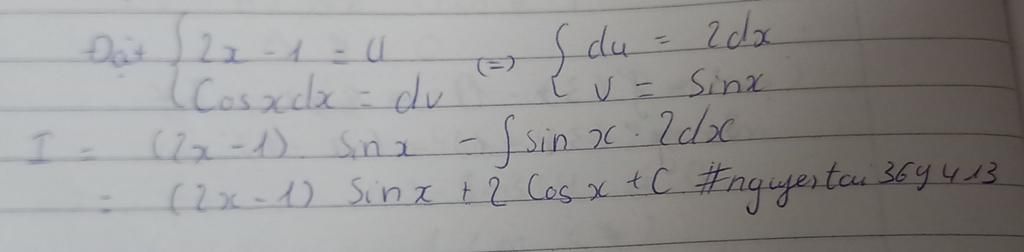 Đặt { 2x - 1 = u (=) { du = 2dx
{ Cosxdx = dv { v = Sinx
I = (2x - 1) sin x - ∫ sin x . 2dx
= (2x - 1) Sin x + 2 Cos x + C #nguyentau36y413